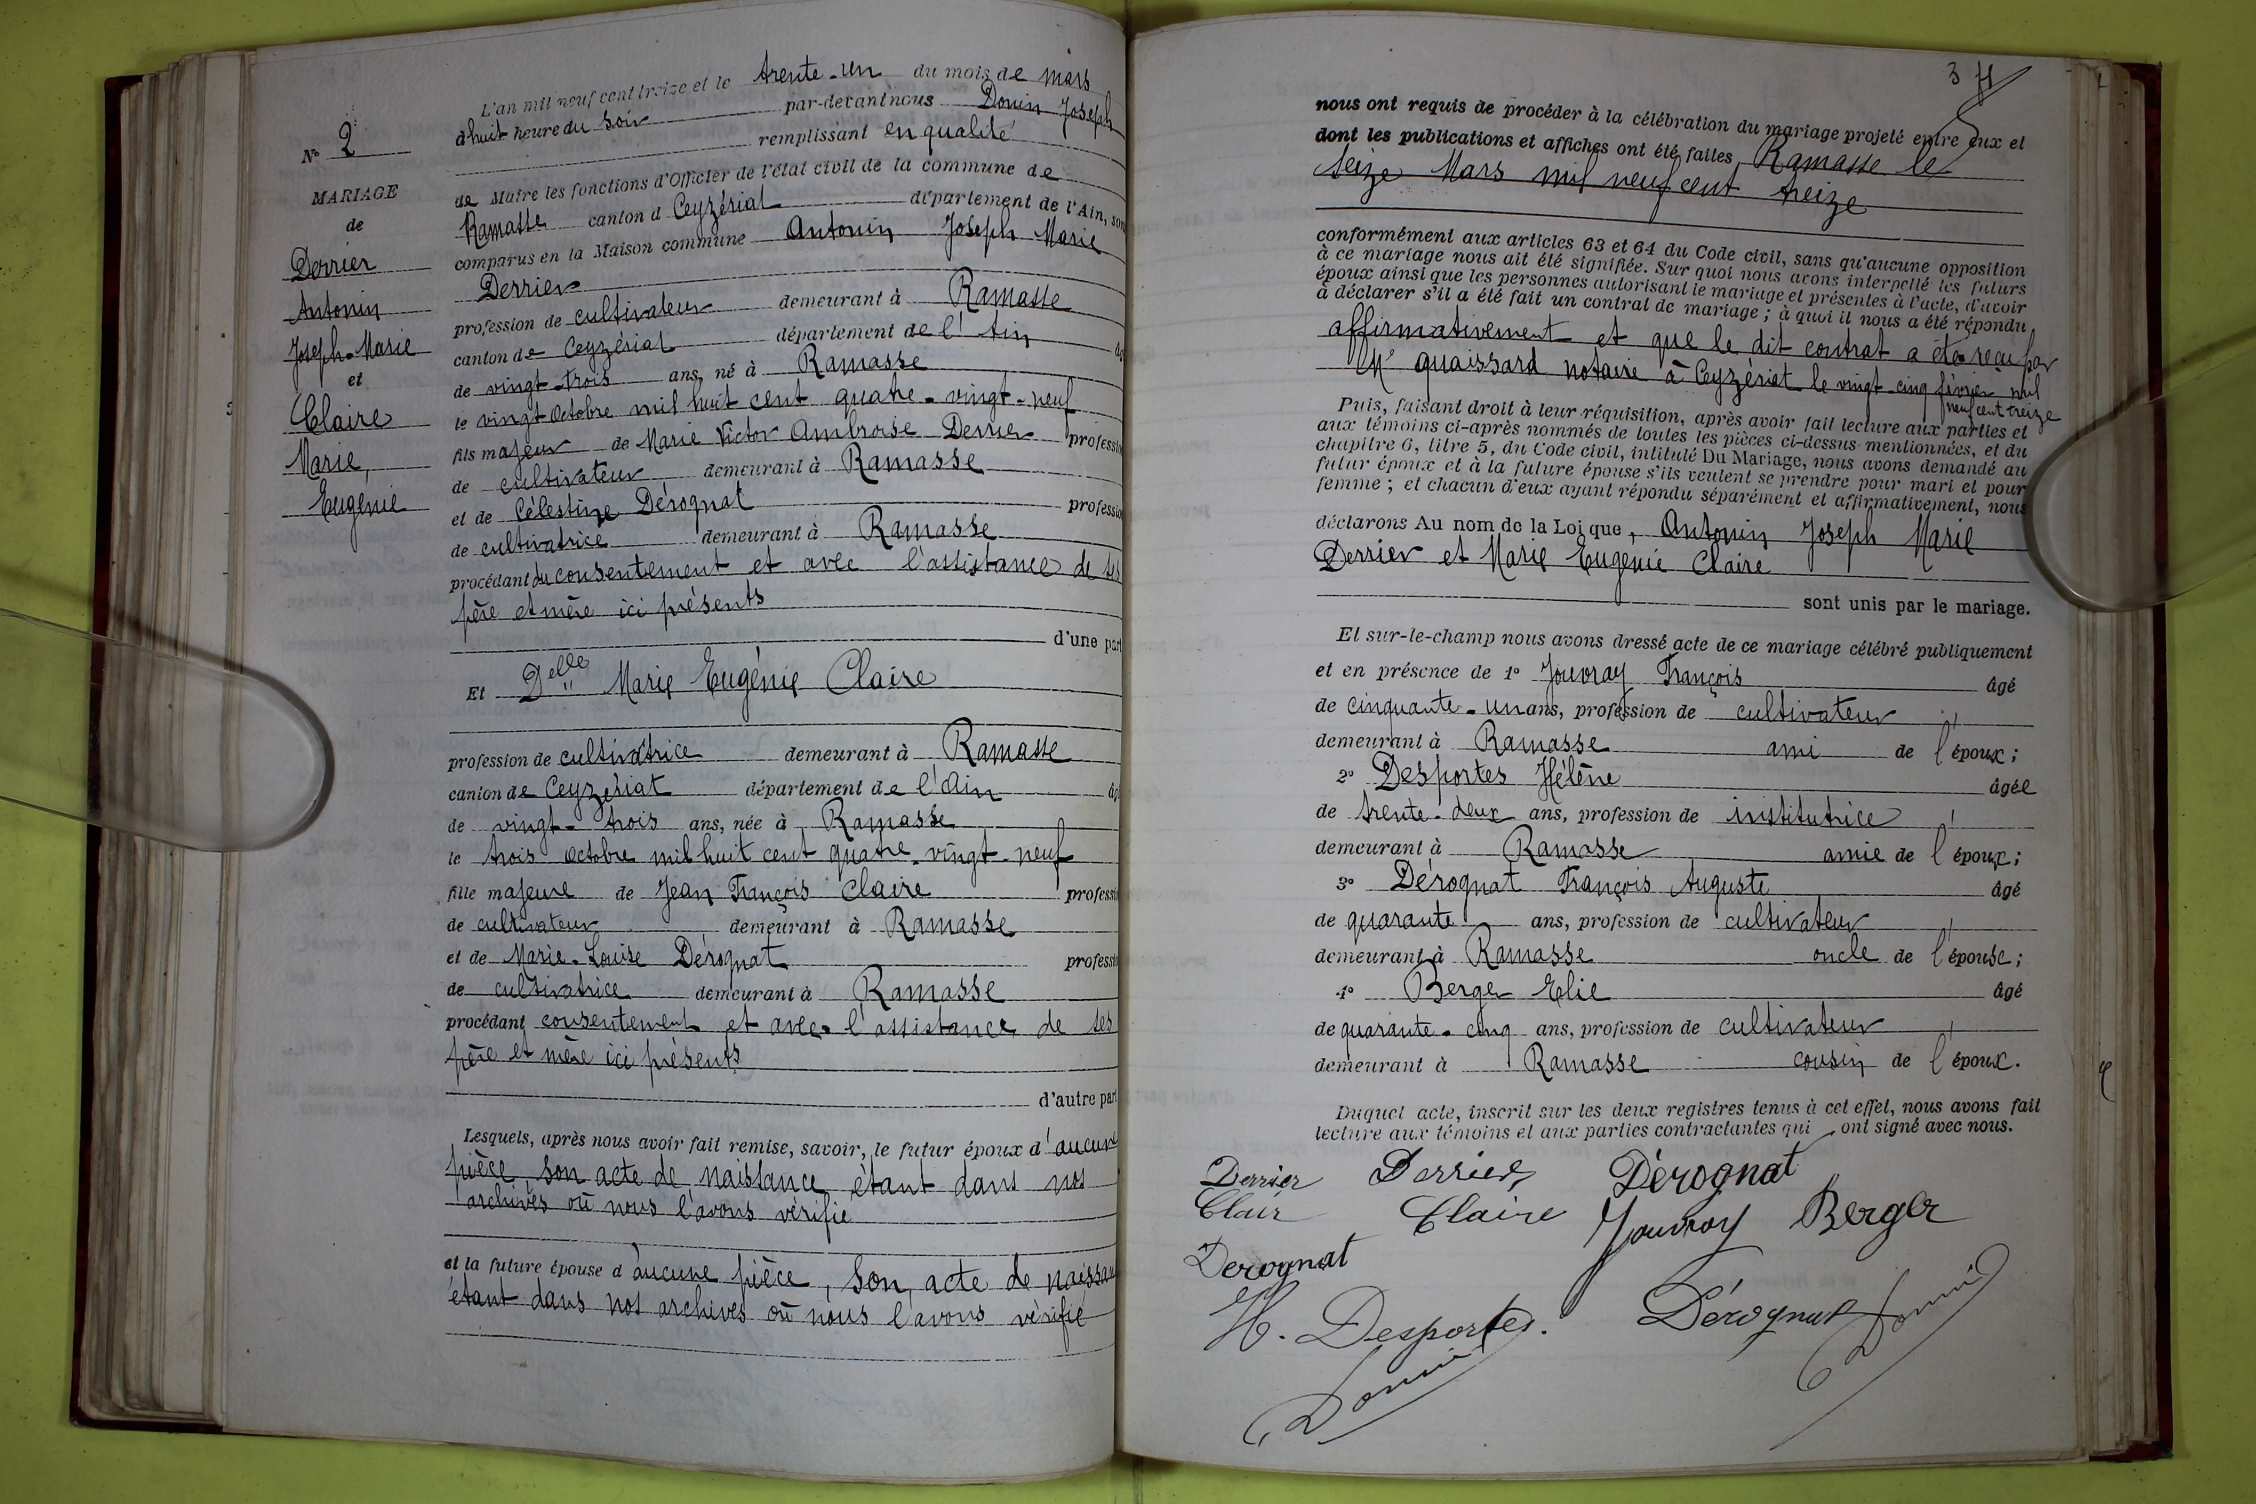 L'an mil neuf cent treize et le trente-un du mois de mars
à huit heure du soir par-devant nous Donin Joseph
remplissant en qualité
de Maire les fonctions d'Officier de l'état civil de la commune de
Ramasse canton d Ceyzériat département de l'Ain, sont
comparus en la Maison commune Antonin Joseph Marie
Derrier
profession de cultivateur demeurant à Ramasse
canton de Ceyzériat département de l'Ain
de vingt-trois ans, né à Ramasse
le vingt Octobre mil huit cent quatre-vingt-neuf
fils majeur de Marie Victor Ambroise Derrier profession
de cultivateur demeurant à Ramasse
et de Célestine Dérognat profession
de cultivatrice demeurant à Ramasse
procédant du consentement et avec l'assistance de ses
père et mère ici présents
d'une part
Et Delle Marie Eugénie Claire
profession de cultivatrice demeurant à Ramasse
canton de Ceyzériat département de l'Ain
de vingt-trois ans, née à Ramasse
le trois Octobre mil huit cent quatre-vingt-neuf
fille majeure de Jean François Claire profession
de cultivateur demeurant à Ramasse
et de Marie-Louise Dérognat profession
de cultivatrice demeurant à Ramasse
procédant consentement et avec l'assistance de ses
père et mère ici présents
d'autre part
Lesquels, après nous avoir fait remise, savoir, le futur époux d'aucune
pièce, son acte de naissance étant dans nos
archives où nous l'avons vérifié
et la future épouse d'aucune pièce, son acte de naissan
étant dans nos archives où nous l'avons vérifié
N° 2
MARIAGE
de
Derrier
Antonin
Joseph-Marie
et
Claire
Marie,
Eugénie
3
nous ont requis de procéder à la célébration du mariage projeté entre eux et
dont les publications et affiches ont été faites, Ramasse le
seize Mars mil neuf cent treize
conformément aux articles 63 et 64 du Code civil, sans qu'aucune opposition
à ce mariage nous ait été signifiée. Sur quoi nous avons interpellé les futurs
époux ainsi que les personnes autorisant le mariage et présentes à l'acte, d'avoir
à déclarer s'il a été fait un contrat de mariage ; à quoi il nous a été répondu
affirmativement et que le dit contrat a été reçu par
Me quaissard notaire à Ceyzériat le vingt-cinq février mil
neuf cent treize
Puis, faisant droit à leur réquisition, après avoir fait lecture aux parties et
aux témoins ci-après nommés de toutes les pièces ci-dessus mentionnées, et du
chapitre 6, titre 5, du Code civil, intitulé Du Mariage, nous avons demandé au
futur époux et à la future épouse s'ils veulent se prendre pour mari et pour
femme ; et chacun d'eux ayant répondu séparément et affirmativement, nous
déclarons Au nom de la Loi que, Antonin Joseph Marie
Derrier et Marie Eugénie Claire
sont unis par le mariage.
Et sur-le-champ nous avons dressé acte de ce mariage célébré publiquement
et en présence de 1° Jouvray François âgé
de cinquante-un ans, profession de cultivateur
demeurant à Ramasse ami de l'époux ;
2° Desportes Hélène âgée
de trente-deux ans, profession de institutrice
demeurant à Ramasse amie de l'époux ;
3° Dérognat François Auguste âgé
de quarante ans, profession de cultivateur
demeurant à Ramasse oncle de l'épouse ;
4° Berger Elie âgé
de quarante-cinq ans, profession de cultivateur
demeurant à Ramasse cousin de l'époux.
Duquel acte, inscrit sur les deux registres tenus à cet effet, nous avons fait
lecture aux témoins et aux parties contractantes qui ont signé avec nous.
Derrier Derrier Dérognat
Clair Claire Jouvray Berger
Derognat
H. Desportes. Dérognat Donin
Donin